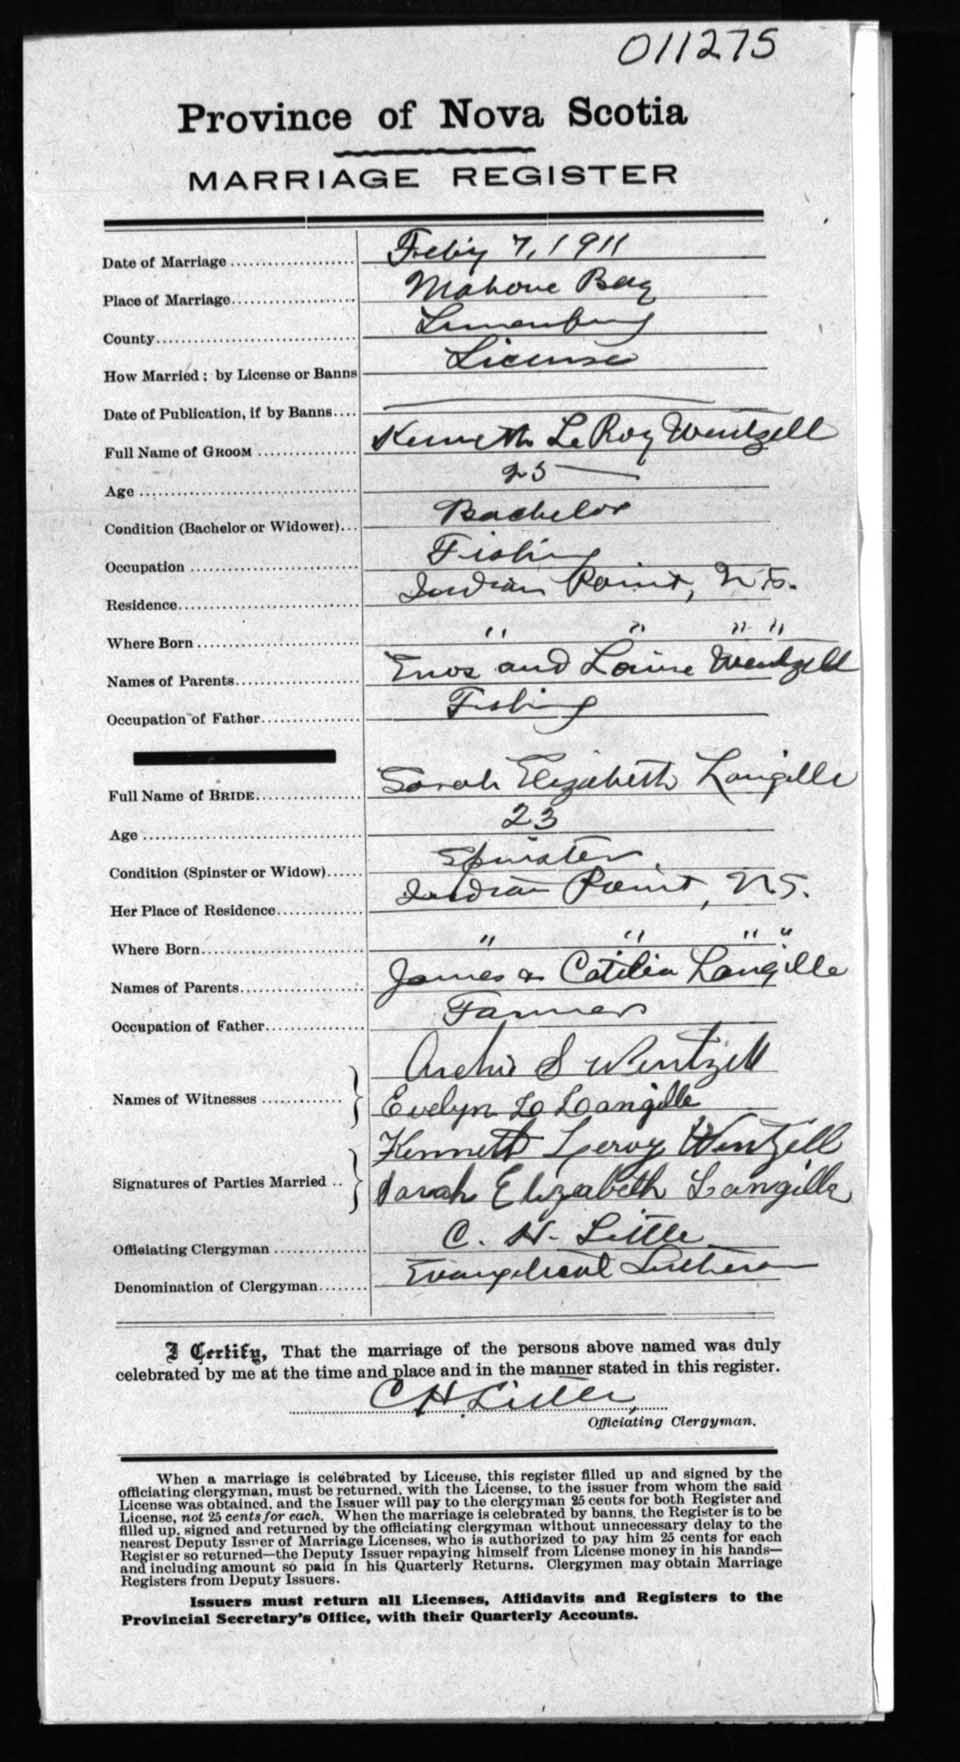 011275
Province of Nova Scotia
MARRIAGE REGISTER
Date of Marriage Feby 7, 1911
Place of Marriage Mahone Bay
County Lunenburg
How Married: by License or Banns License
Date of Publication, if by Banns
Full Name of GROOM Kenneth LeRoy Wentzell
Age 25
Condition (Bachelor or Widower) Bachelor
Occupation Fishing
Residence Indian Point, N.S.
Where Born " " " "
Names of Parents Enos and Wentzell
Occupation of Father Fishing
Full Name of BRIDE Sarah Elizabeth Langille
Age 23
Condition (Spinster or Widow) Spinster.
Her Place of Residence Indian Point, N.S.
Where Born " " " "
Names of Parents James & Langille
Occupation of Father Farmer
Names of Witnesses Archie S Wentzell
Evelyn L Langille
Signatures of Parties Married Kenneth Leroy Wentzell
Sarah Elizabeth Langille
Officiating Clergyman C. H. Little
Denomination of Clergyman Evangelical Lutheran
I Certify, That the marriage of the persons above named was duly
celebrated by me at the time and place and in the manner stated in this register.
C H Little
Officiating Clergyman.
When a marriage is celebrated by License, this register filled up and signed by the
officiating clergyman, must be returned, with the License, to the issuer from whom the said
License was obtained, and the Issuer will pay to the clergyman 25 cents for both Register and
License, not 25 cents for each. When the marriage is celebrated by banns, the Register is to be
filled up, signed and returned by the officiating clergyman without unnecessary delay to the
nearest Deputy Issuer of Marriage Licenses, who is authorized to pay him 25 cents for each
Register so returned—the Deputy Issuer repaying himself from License money in his hands—
and including amount so paid in his Quarterly Returns. Clergymen may obtain Marriage
Registers from Deputy Issuers.
Issuers must return all Licenses, Affidavits and Registers to the
Provincial Secretary's Office, with their Quarterly Accounts.